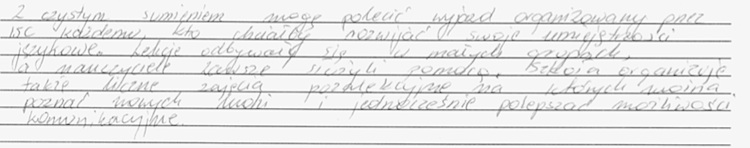 Z czystym sumieniem mogę polecić wyjazd organizowany przez
ISC każdemu, kto chciałby rozwijać swoje umiejętności
językowe. Lekcje odbywały się w małych grupach,
a nauczyciele zawsze służyli pomocą. Szkoła organizuje
także liczne zajęcia pozalekcyjne na których można
poznać nowych ludzi i jednocześnie polepszać możliwości
komunikacyjne.